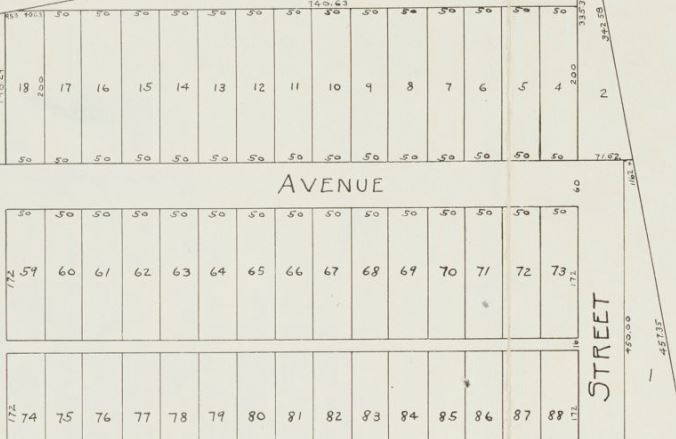 740.63
9.53 40.63 50 50 50 50 50 50 50 50 50 50 50 50 50 50 33.53
342.58
18 200 17 16 15 14 13 12 11 10 9 8 7 6 5 4 200 2
50 50 50 50 50 50 50 50 50 50 50 50 50 50 50 71.62
AVENUE
60
50 50 50 50 50 50 50 50 50 50 50 50 50 50 50
172 59 60 61 62 63 64 65 66 67 68 69 70 71 72 73 172
STREET
450.00
457.35
16
1
172 74 75 76 77 78 79 80 81 82 83 84 85 86 87 88 172